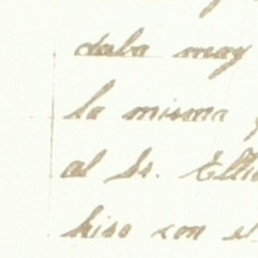 daba muy
la misma
al Sr. Elli
hiso con el